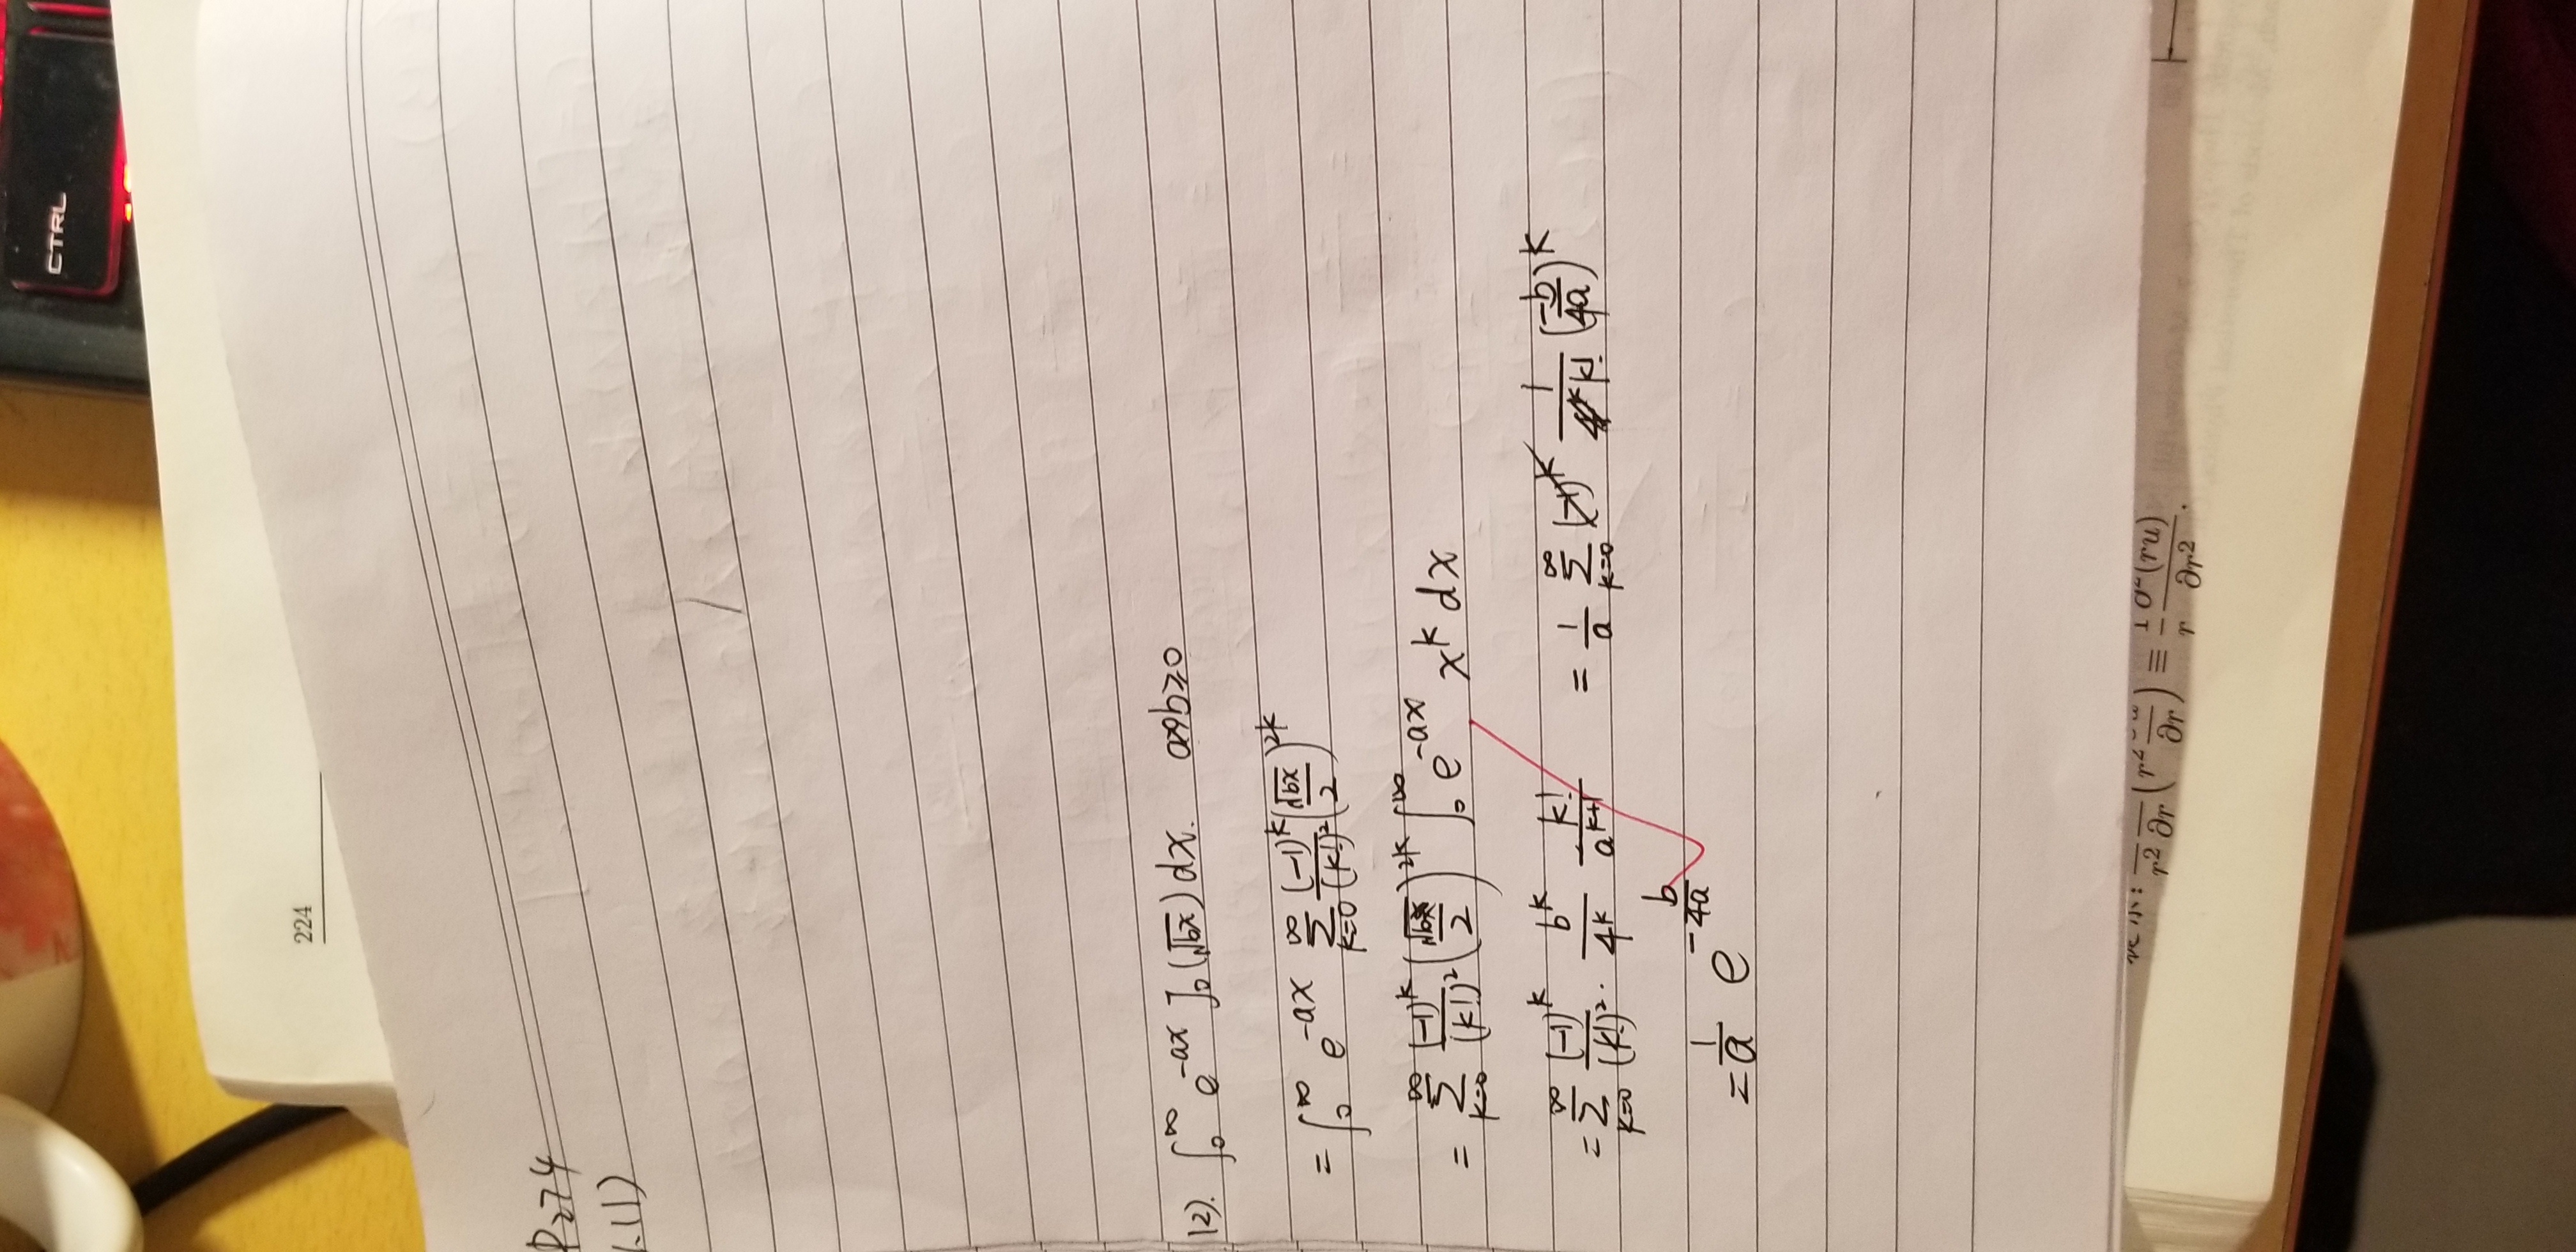 CTRL
224
P274
1.11)
12). ∫₀^∞ e^{-ax} J₀(√bx) dx. a>0 b≥0
= ∫₀^∞ e^{-ax} Σ_{k=0}^∞ (-1)^k/(k!)² (√bx/2)^{2k}
= Σ_{k=0}^∞ (-1)^k/(k!)² (√b/2)^{2k} ∫₀^∞ e^{-ax} x^k dx
= Σ_{k=0}^∞ (-1)^k/(k!)² · b^k/4^k k!/a^{k+1} = 1/a Σ_{k=0}^∞ 1/k! (-b/4a)^k
= 1/a e^{-b/4a}
r² ∂r (r² ∂r) ≡ 1/r ∂²(ru)/∂r².